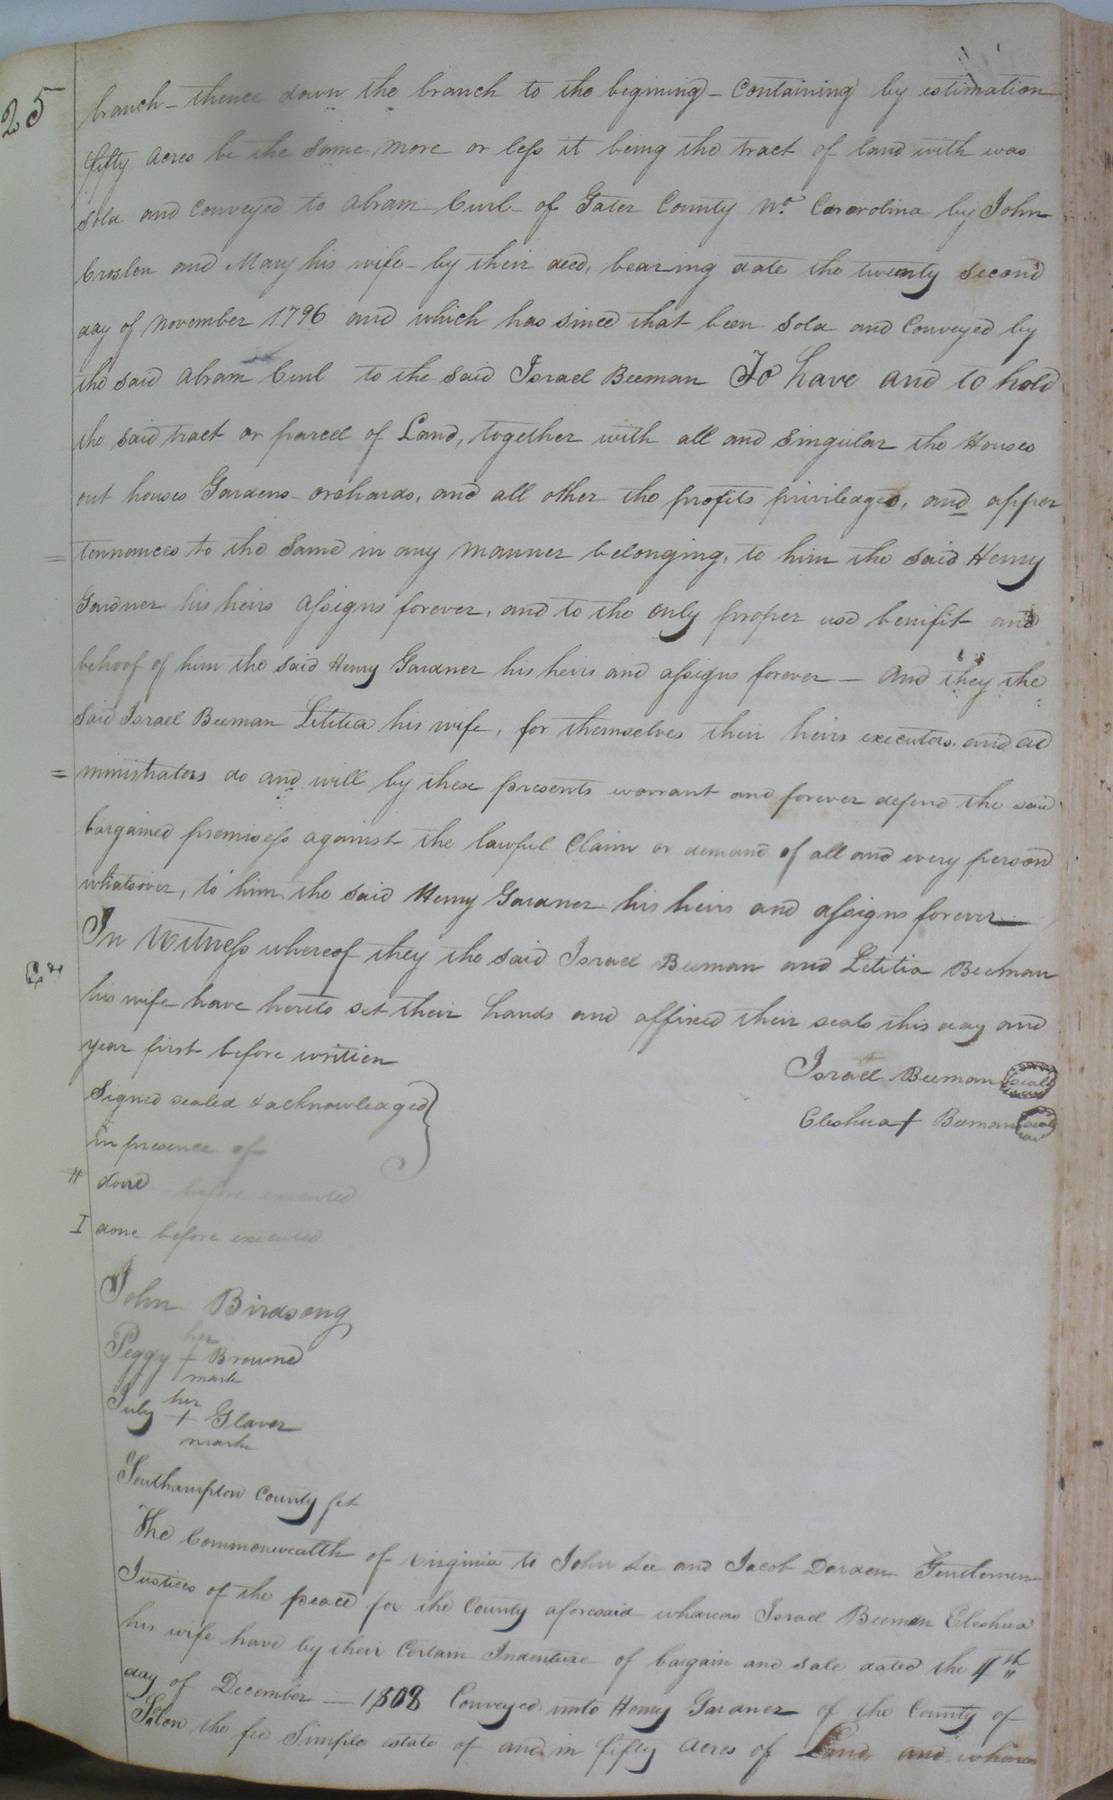 25
branch - thence down the branch to the begining - Containing by estimation
fifty Acres be the same more or less it being the tract of land with was
sold and Conveyed to Abram Curl of Gates County No. Cororolina by John
Croslen and Mary his wife - by their deed, bearing date the twenty second
day of November 1796 and which has since that been sold and Conveyed by
the said Abram Curl to the said Israel Beeman To have and to hold
the said tract or parcel of Land, together with all and Singular the Houses
out houses Gardens orchards, and all other the profits priviledges, and apper
= tennances to the Same in any manner belonging, to him the said Henry
Gardner his heirs assigns forever, and to the only proper use benifit and
behoof of him the said Henry Gardner his heirs and assigns forever - And they the
said Israel Beeman Letitia his wife, for themselves their heirs executors and ad
= ministrators do and will by these presents warrant and forever defend the said
bargained premisess against the lawful Claim or demand of all and every person
whatsover, to him the said Henry Gardner his heirs and assigns forever
In Witness whereof they the said Israel Beeman and Letitia Beeman
his wife have hereto set their hands and affixed their seals this day and
year first before written
Israel Beeman seal
Signed sealed & acknowledged
Eleshua + Beeman seal
in presence of
" done before executed
I done before executed
John Birdsong
her
Peggy + Browne
mark
her
July + Glaver
mark
Southampton County sct
The Commonwealth of Virginia to John Lee and Jacob Darden Gentlemen
Justices of the peace for the County aforesaid whereas Israel Beeman Eleshua
his wife have by their Certain Indenture of bargain and sale dated the 4th
day of December - 1808 Conveyed unto Henry Gardner of the County of
the fee Simple estate of and in fifty Acres of Land and whereas